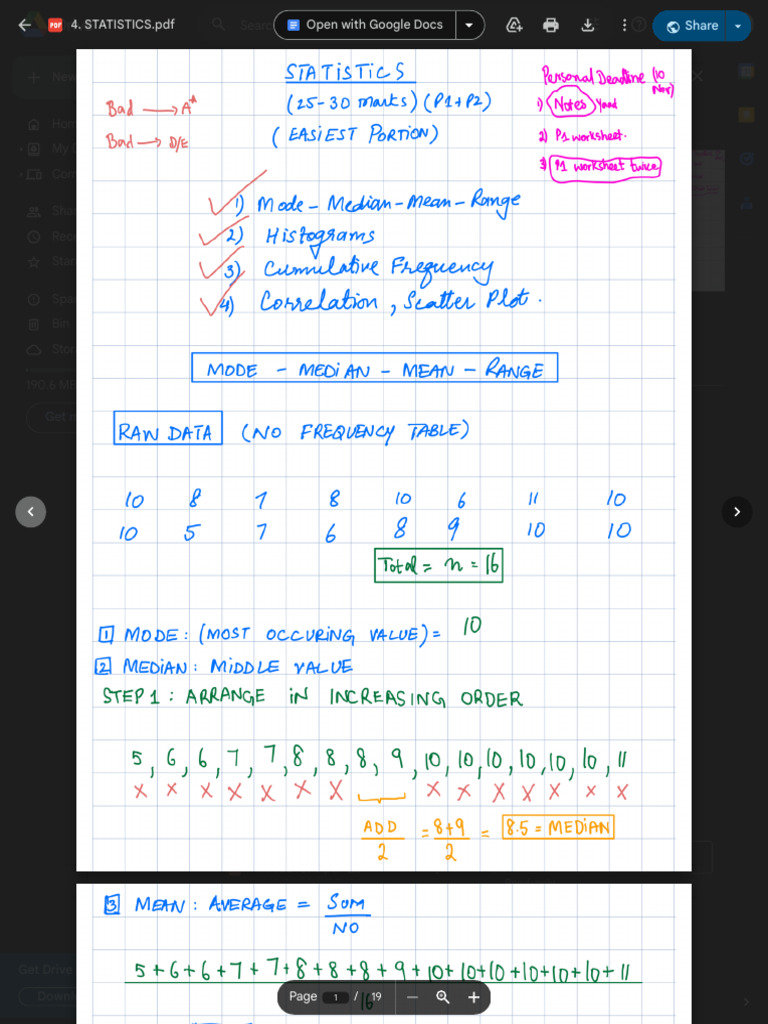 4. STATISTICS.pdf
Open with Google Docs
Share
STATISTICS
(25-30 marks) (P1+P2)
(EASIEST PORTION)
Bad → A*
Bad → D/E
Personal Deadline (10 Nov)
1) Notes Yaad
2) P1 worksheet.
3) P1 worksheet twice
1) Mode - Median - Mean - Range
2) Histograms
3) Cumulative Frequency
4) Correlation, Scatter Plot.
MODE - MEDIAN - MEAN - RANGE
RAW DATA (NO FREQUENCY TABLE)
10 8 7 8 10 6 11 10
10 5 7 6 8 9 10 10
Total = n = 16
1 MODE: (MOST OCCURING VALUE) = 10
2 MEDIAN: MIDDLE VALUE
STEP 1: ARRANGE IN INCREASING ORDER
5, 6, 6, 7, 7, 8, 8, 8, 9, 10, 10, 10, 10, 10, 10, 11
x x x x x x x x x x x x x x
ADD/2 = 8+9/2 = 8.5 = MEDIAN
3 MEAN: AVERAGE = SUM/NO
5+6+6+7+7+8+8+8+9+10+10+10+10+10+10+11
16
Page 1 / 19
190.6 MB
Bin